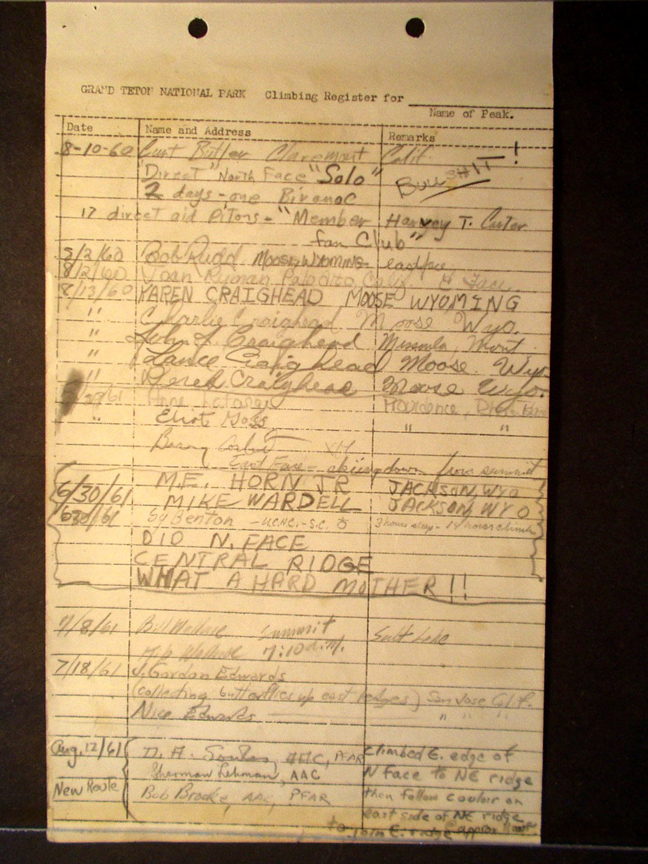 GRAND TETON NATIONAL PARK Climbing Register for
Name of Peak.
Date Name and Address Remarks
8-10-60 Curt Butler Claremont Calif. !
"Direct" North Face "Solo" BULLSHIT
2 days - one Bivouac
17 direct aid Pitons - "Member Harvey T. Carter
fan Club"
8/2/60 Bob Rudd Moose, WYOMING
8/2/60 Joan
8/13/60 KAREN CRAIGHEAD MOOSE WYOMING
" Charlie Craighead Moose Wyo.
" John J. Craighead Missoula Mont
" Lance Craighead Moose. Wyo
" Derek Craighead Moose Wyo.
Anne Providence,
" Eliot Goss " "
Barry Corbet
East Face - skiing down from summit
6/30/61 M.E. HORN JR JACKSON, WYO
MIKE WARDELL JACKSON, WYO
6/30/61 Sy Benton
DID N. FACE
CENTRAL RIDGE
WHAT A HARD MOTHER!!
/8/61 Bill Wallace Summit Salt Lake
Wallace 7:10
7/18/61 J. Gordon Edwards
(collecting butterflies up east ridges) San Jose Calif.
Edwards " " "
Aug. 12/61 climbed E. edge of
Sherman Lehman, AAC N face to NE ridge
New Route Bob AAC, PFAR then follow couloir on
east side of NE ridge
to join E. ridge approx